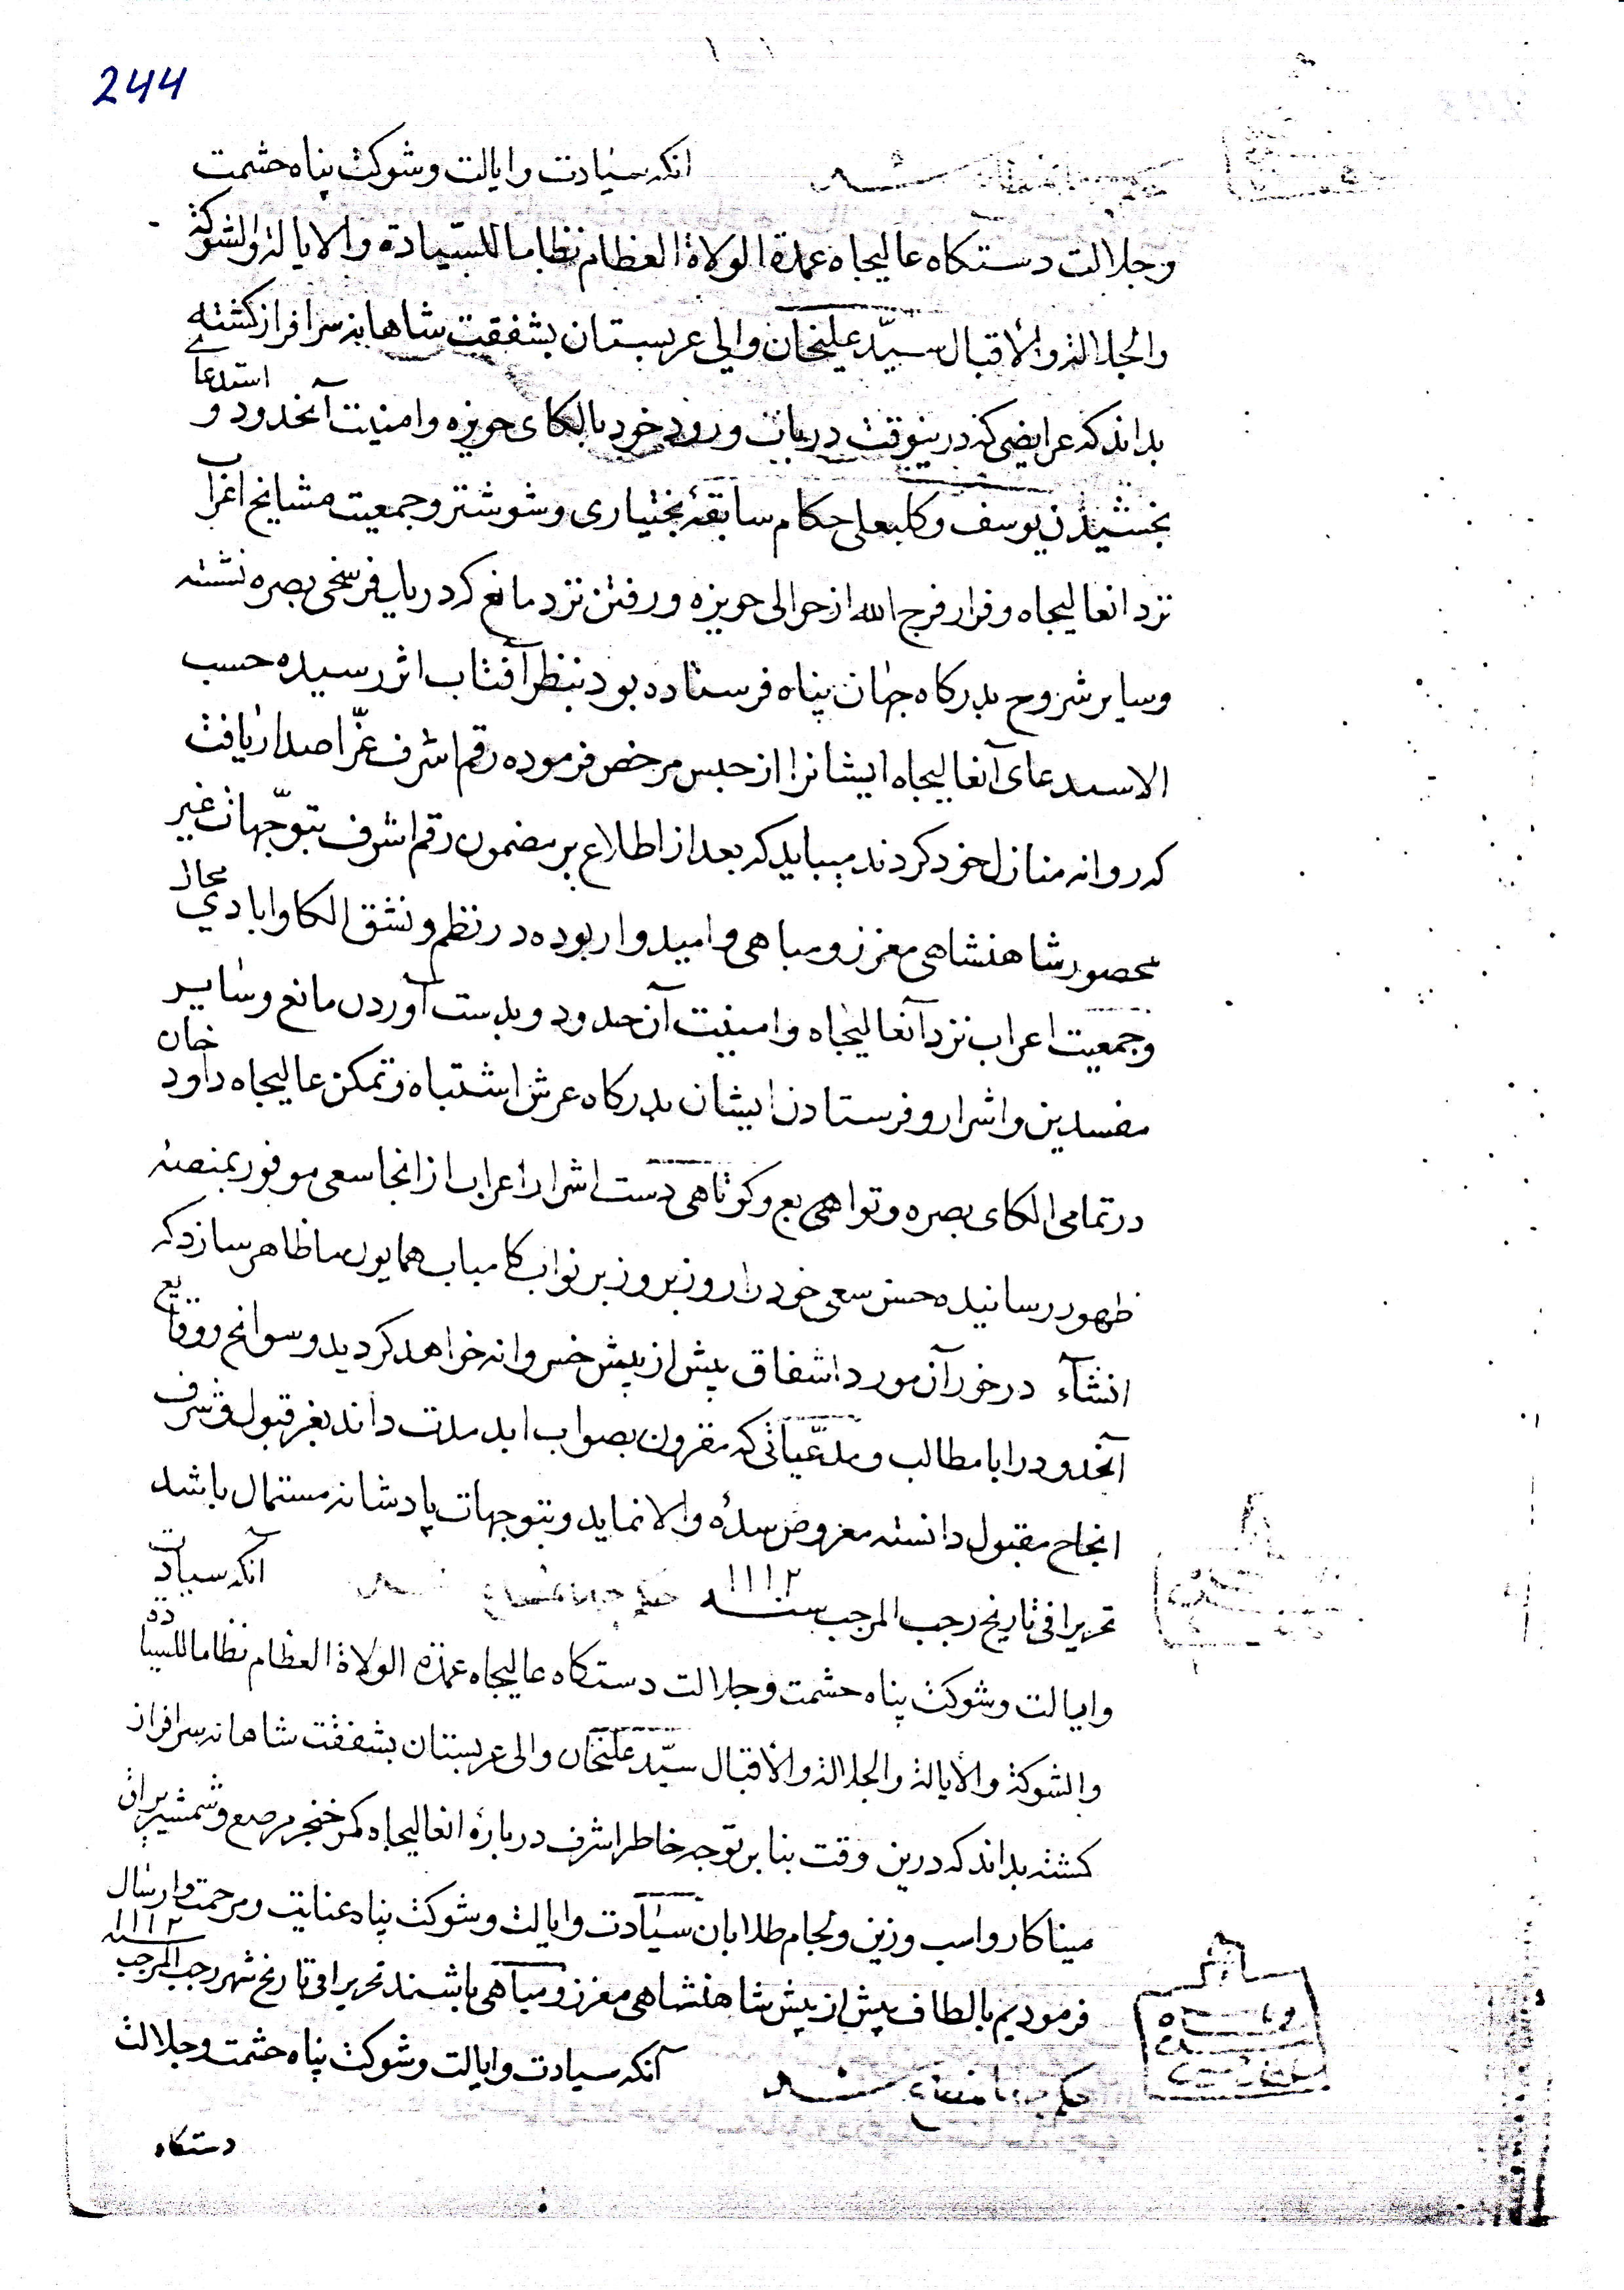 244
حکم جهانمطاع شد انکه سیادت وایالت وشوکت پناه حشمت
وجلالت دستکاه عالیجاه عمدة الولاة العظام نظاما للسّیادة والایالة والشوکة
والجلالة والاقبال سیّد علیخان والی عربستان بشفقت شاهانه سرافراز کشته
بداند که عرایضی که درینوقت در باب ورود خود بالکای حویزه وامنیت آنحدود و استدعای
بخشیدن یوسف وکلبعلی حکام سابقهٔ بختیاری وشوشتر وجمعیت مشایخ اعراب
نزد انعالیجاه وفرار فرج الله از حوالی حویزه ورفتن نزد مانع که در یک فرسخی بصره نشسته
وسایر شروح بدرکاه جهان پناه فرستاده بود بنظر آفتاب اثر رسیده حسب
الاستدعای آنعالیجاه ایشانرا از حبس مرخص فرموده رقم اشرف عزّ اصدار یافت
که روانه منازل خود کردند میباید که بعد از اطلاع بر مضمون رقم اشرف بتوجّهات غیر
محصور شاهنشاهی معزز ومباهی وامیدوار بوده در نظم ونسق الکا وابادی محال
وجمعیت اعراب نزد آنعالیجاه وامنیت آن حدود وبدست آوردن مانع وسایر
مفسدین واشرار وفرستادن ایشان بدرکاه عرش اشتباه وتمکن عالیجاه داود خان
در تمامی الکای بصره وتوابع وکوتاهی دست اشرار اعراب از انجا سعی موفور بمنصه
ظهور رسانیده حسن سعی خود را روز بروز بر نواب کامیاب همایون ما ظاهر سازد که
انشآء در خور آن مورد اشفاق بیش از پیش خسروانه خواهد کردید وسوانح ووقایع
آنحدود را با مطالب ومدّعیاتی که مقرون بصواب ابد مدت داند بعز قبول وشرف
انجاح مقبول دانسته معروض سدهٔ والا نماید وبتوجهات پادشانه مستمال باشد
تحریرا فی تاریخ رجب المرجب سنه ۱۱۱۲ حکم جهانمطاع شد آنکه سیادت
وایالت وشوکت پناه حشمت وجلالت دستکاه عالیجاه عمدة الولاة العظام نظاما للسیادة
والشوکة والایالة والجلالة والاقبال سیّد علیخان والی عربستان بشفقت شاهانه سرافراز
کشته بداند که درین وقت بنابر توجه خاطر اشرف دربارهٔ انعالیجاه کمر خنجر مرصع وشمشیر یراق
میناکار واسب وزین ولجام طلا بان سیادت وایالت وشوکت پناه عنایت ومرحمت وارسال
فرمودیم بالطاف بیش از پیش شاهنشاهی معزز ومباهی باشند تحریرا فی تاریخ شهر رجب المرجب سنه ۱۱۱۲
حکم جهانمطاع شد آنکه سیادت وایالت وشوکت پناه حشمت وجلالت
دستکاه